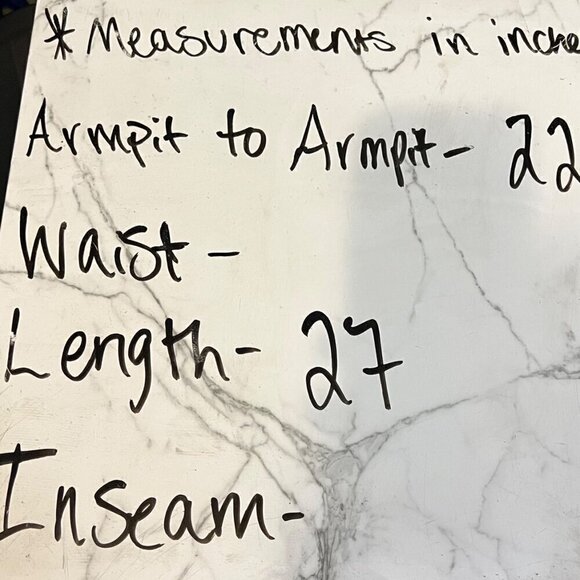 *Measurements in inche
Armpit to Armpit- 22
Waist -
Length- 27
Inseam-